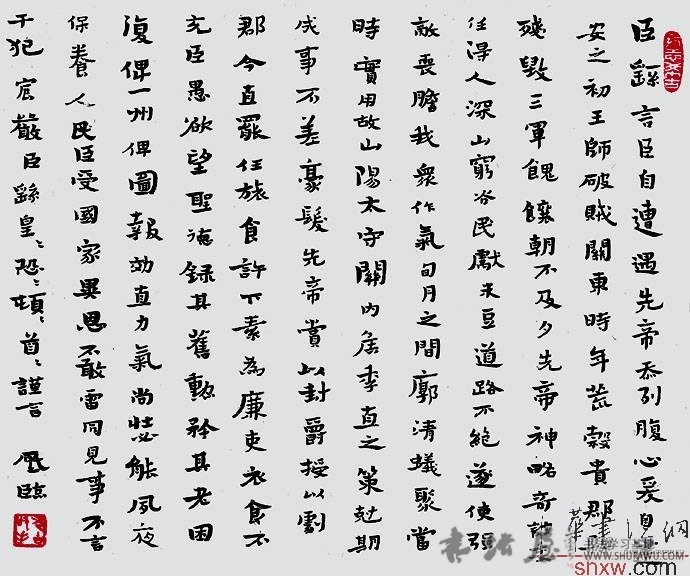 臣繇言臣自遭遇先帝忝列腹心爰自
安之初王師破賊關東時年荒穀貴郡
殘毀三軍餽饟朝不及夕先帝神略奇計
任得人深山窮谷民獻米豆道路不絕遂使強
敵喪膽我衆作氣旬月之間廓清蟻聚當
時實用故山陽太守關內侯季直之策尅期
成事不差豪髮先帝賞以封爵授以劇
郡今直罷任旅食許下素為廉吏衣食不
充臣愚欲望聖德録其舊勲矜其老困
復俾一州俾圖報効直力氣尚壯必能夙夜
保養人民臣受國家異恩不敢雷同見事不言
干犯宸嚴臣繇皇〻恐〻頓〻首〻謹言 臨
書法屋
WWW.SHUFAWU.COM
shxw.com